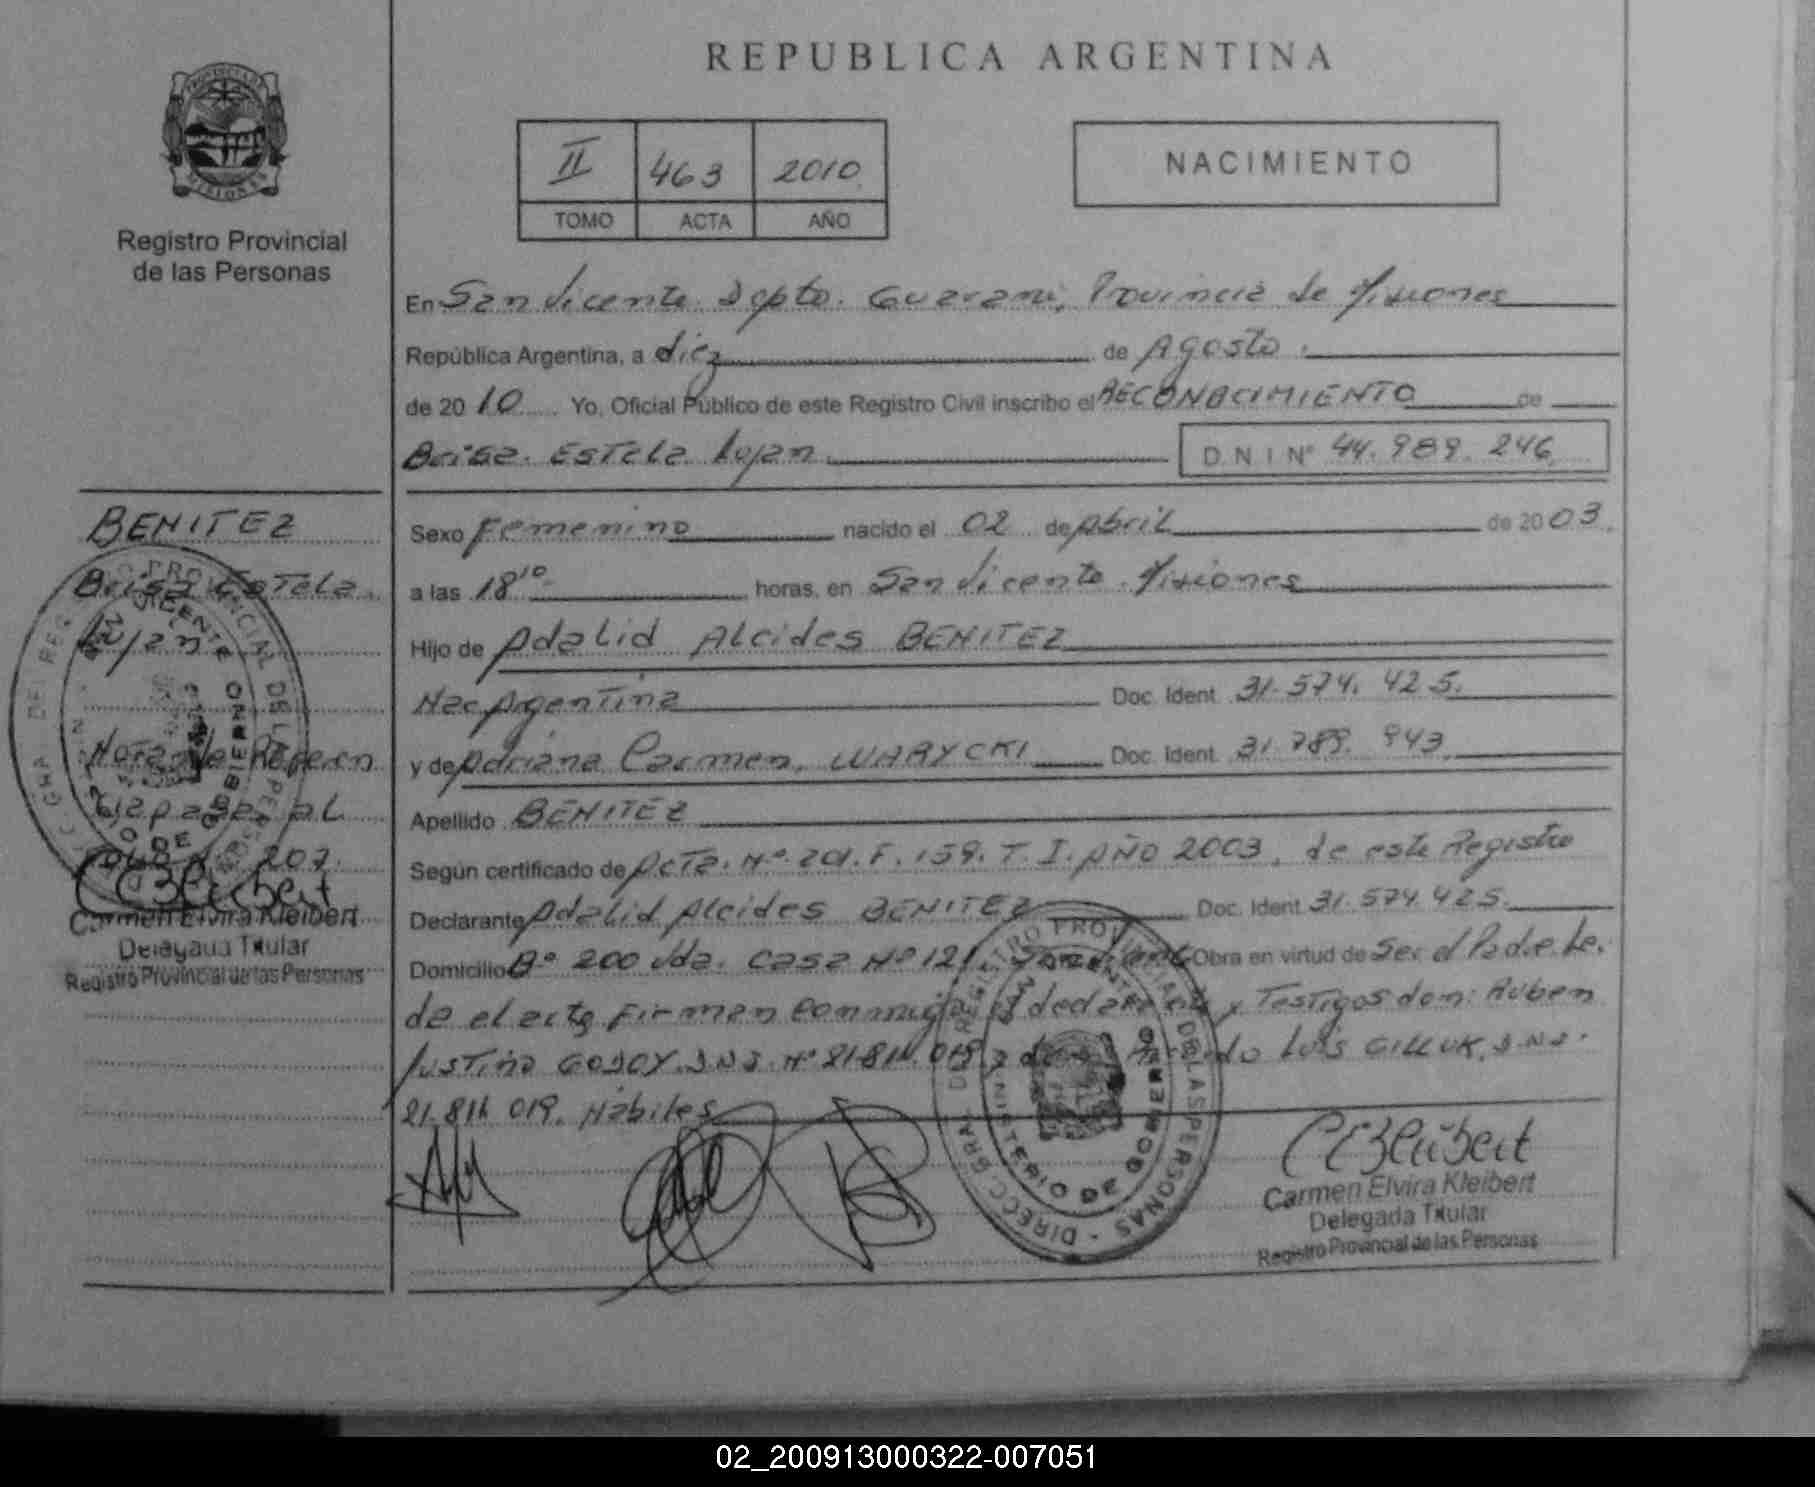 REPUBLICA ARGENTINA
PROVINCIA DE
MISIONES
Registro Provincial
de las Personas
II 463 2010
TOMO ACTA AÑO
NACIMIENTO
En San Vicente Dpto. Guarani, Provincia de Misiones
República Argentina, a diez de Agosto
de 2010 Yo, Oficial Público de este Registro Civil inscribo el RECONOCIMIENTO de
Brisa Estela Lujan D N I Nº 44.989.246
Sexo Femenino nacido el 02 de Abril de 2003
a las 18¹⁰ horas, en San Vicente Misiones
Hijo de Adalid Alcides BENITEZ
Nac Argentina Doc. Ident. 31.574.425.
y de Adriana Carmen, WARYCKI Doc. Ident. 31.789.943
Apellido BENITEZ
Según certificado de Acta. Nº 201. F. 159. T. I. AÑO 2003, de este Registro
Declarante Adalid Alcides BENITEZ Doc. Ident. 31.574.425.
Domicilio Bº 200 Vda. Casa Nº 121 Obra en virtud de Ser el Padre. Le.
da el acta Firman conmigo el y Testigos don: Ruben
Justino GODOY. D.N.I. Nº Luis D.N.I.
21.811.019. Hábiles
BENITEZ
Brisa Estela
Lujan
Nota de Referen
cia pasa al
207.
Carmen Elvira Kleibert
Delegada Titular
Registro Provincial de las Personas
Carmen Elvira Kleibert
Delegada Titular
Registro Provincial de las Personas
DIRECC. GRAL. DEL REGISTRO PROVINCIAL DE LAS PERSONAS
SAN VICENTE
MINISTERIO DE GOBIERNO
02_200913000322-007051